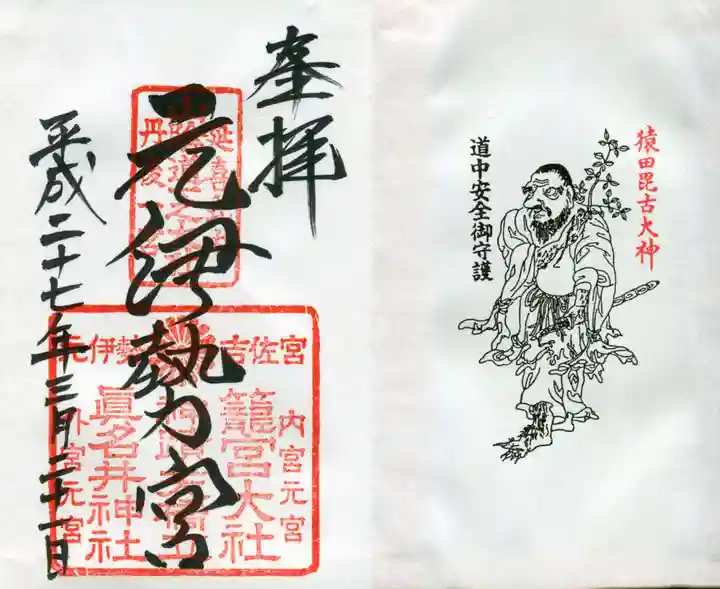 奉拝
元伊勢宮
平成二十七年三月二十一日
延喜
丹後
吉佐宮
元伊勢
内宮元宮
籠宮大社
眞名井神社
外宮元宮
猿田毘古大神
道中安全御守護